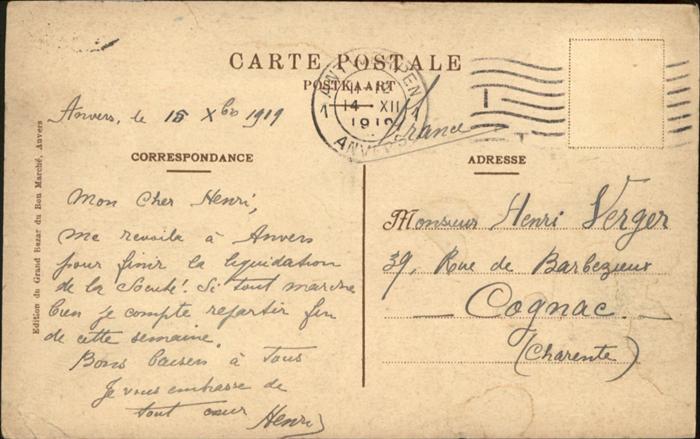 CARTE POSTALE
POSTKAART
ANTWERPEN
14 XII
1919
1 1
ANVERS
Anvers, le 15 Xbre 1919
France
CORRESPONDANCE
ADRESSE
Mon Cher Henri,
me revoila à Anvers
pour finir la liquidation
de la Société. Si tout marche
bien je compte repartir fin
de cette semaine.
Bons baisers à tous
Je vous embrasse de
tout cœur Henri
Monsieur Henri Verger
39, Rue de Barbezieux
Cognac
(Charente)
Edition du Grand Bazar du Bon Marché, Anvers